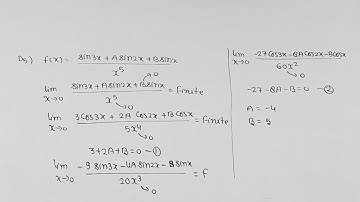 D5) f(x) = sin3x + A sin2x + B sinx / x⁵
lim x→0 sin3x + A sin2x + B sinx / x⁵ →0 = Finite
lim x→0 3 cos3x + 2A cos2x + B cosx / 5x⁴ →0 = Finite
3 + 2A + B = 0 — ①
lim x→0 -9 sin3x - 4A sin2x - B sinx / 20x³ →0 = F
lim x→0 -27 cos3x - 8A cos2x - B cosx / 60x² →0
-27 - 8A - B = 0 — ②
A = -4
B = 5